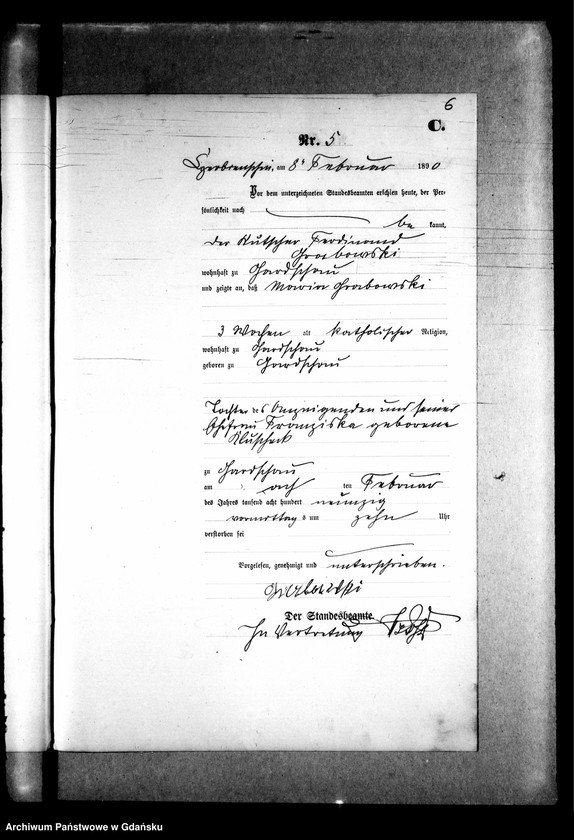 6
C.
Nr. 5
am 8t Februar 1890
Vor dem unterzeichneten Standesbeamten erschien heute, der Per-
sönlichkeit nach
be kannt,
der Kutscher Ferdinand
Grabowski
wohnhaft zu Gardschau
und zeigte an, daß Maria Grabowski
3 Wochen alt katholischer Religion,
wohnhaft zu Gardschau
geboren zu Gardschau
Tochter des Anzeigenden und seiner
Ehefrau Franziska geborene
zu Gardschau
am ten Februar
des Jahres tausend acht hundert neunzig
vormittags um zehn Uhr
verstorben sei
Vorgelesen, genehmigt und unterschrieben.
Grabowski
Der Standesbeamte.
In Vertretung
Archiwum Państwowe w Gdańsku